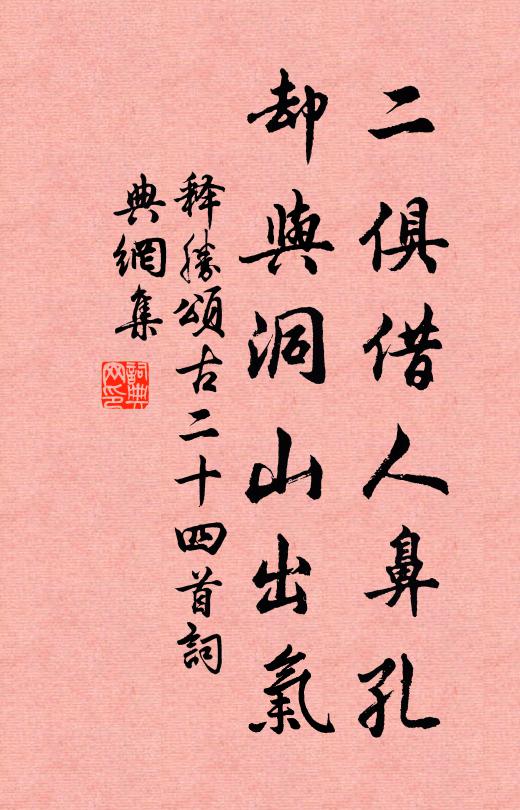 二俱借人鼻孔
却與洞山出氣
释勝頌古二十四首詞
典網集
詞典網印